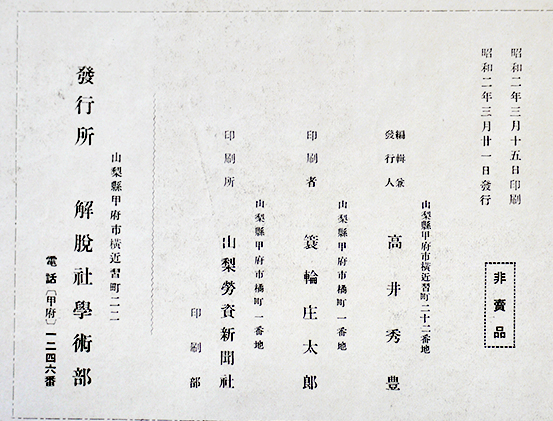 昭和二年三月十五日印刷
昭和二年三月廿一日發行
非賣品
山梨縣甲府市橫近習町二十二番地
編輯兼
發行人
高井秀豊
山梨縣甲府市橘町一番地
印刷者
簔輪庄太郎
山梨縣甲府市橘町一番地
印刷所
山梨勞資新聞社
印刷部
山梨縣甲府市橫近習町二二
發行所 解脫社學術部
電話〔甲府〕一二四六番